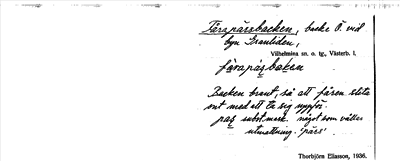 Fårapässbacken, backe Ö. vid
byn Granliden,
Vilhelmina sn. o. tg., Västerb. l.
fårapásbaken
Backen brant, så att fåren slita
ont med att ta sig uppför.
pas subst. mask. något som vållar
utmattning. 'pärs'
Thorbjörn Eliasson, 1936.